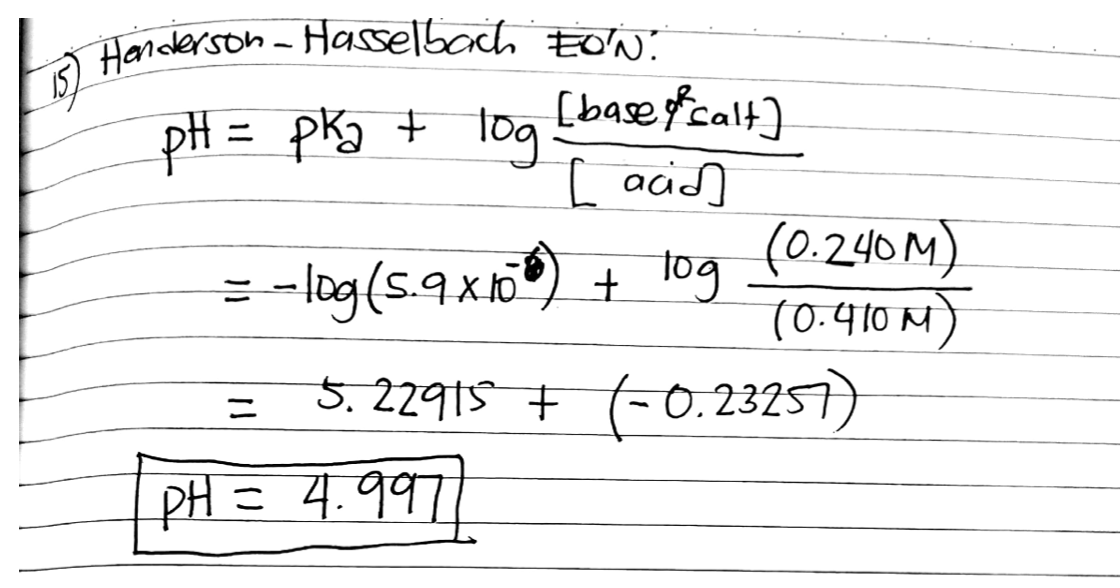 15) Henderson-Hasselbach EQ'N:
pH = pKa + log [base of salt] / [acid]
= -log(5.9 x 10⁻⁶) + log (0.240 M) / (0.410 M)
= 5.22915 + (-0.23257)
pH = 4.997